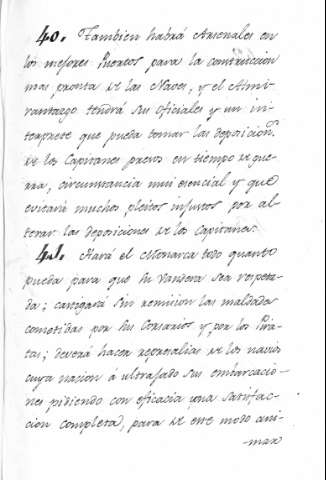 40. Tambien habrá Arsenales en
los mejores Puertos para la construccion
mas pronta de las Naves, y el Almi-
rantazgo tendrá sus oficiales y un in-
terprete que pueda tomar las deposicion.^s
de los Capitanes presos en tiempo de gue-
rra, circunstancia mui esencial y que
evitará muchos pleitos injustos por al-
terar las deposiciones de los Capitanes.
41. Hará el Monarca todo quanto
pueda para que su Vandera sea respeta-
da; castigará sin remision las maldades
cometidas por sus Corsarios y por los Pira-
tas; deverá hacer represalias de los navios
cuya nacion á ultrajado sus embarcacio-
nes pidiendo con eficacia una satisfac-
cion completa, para de este modo ani-
-mar